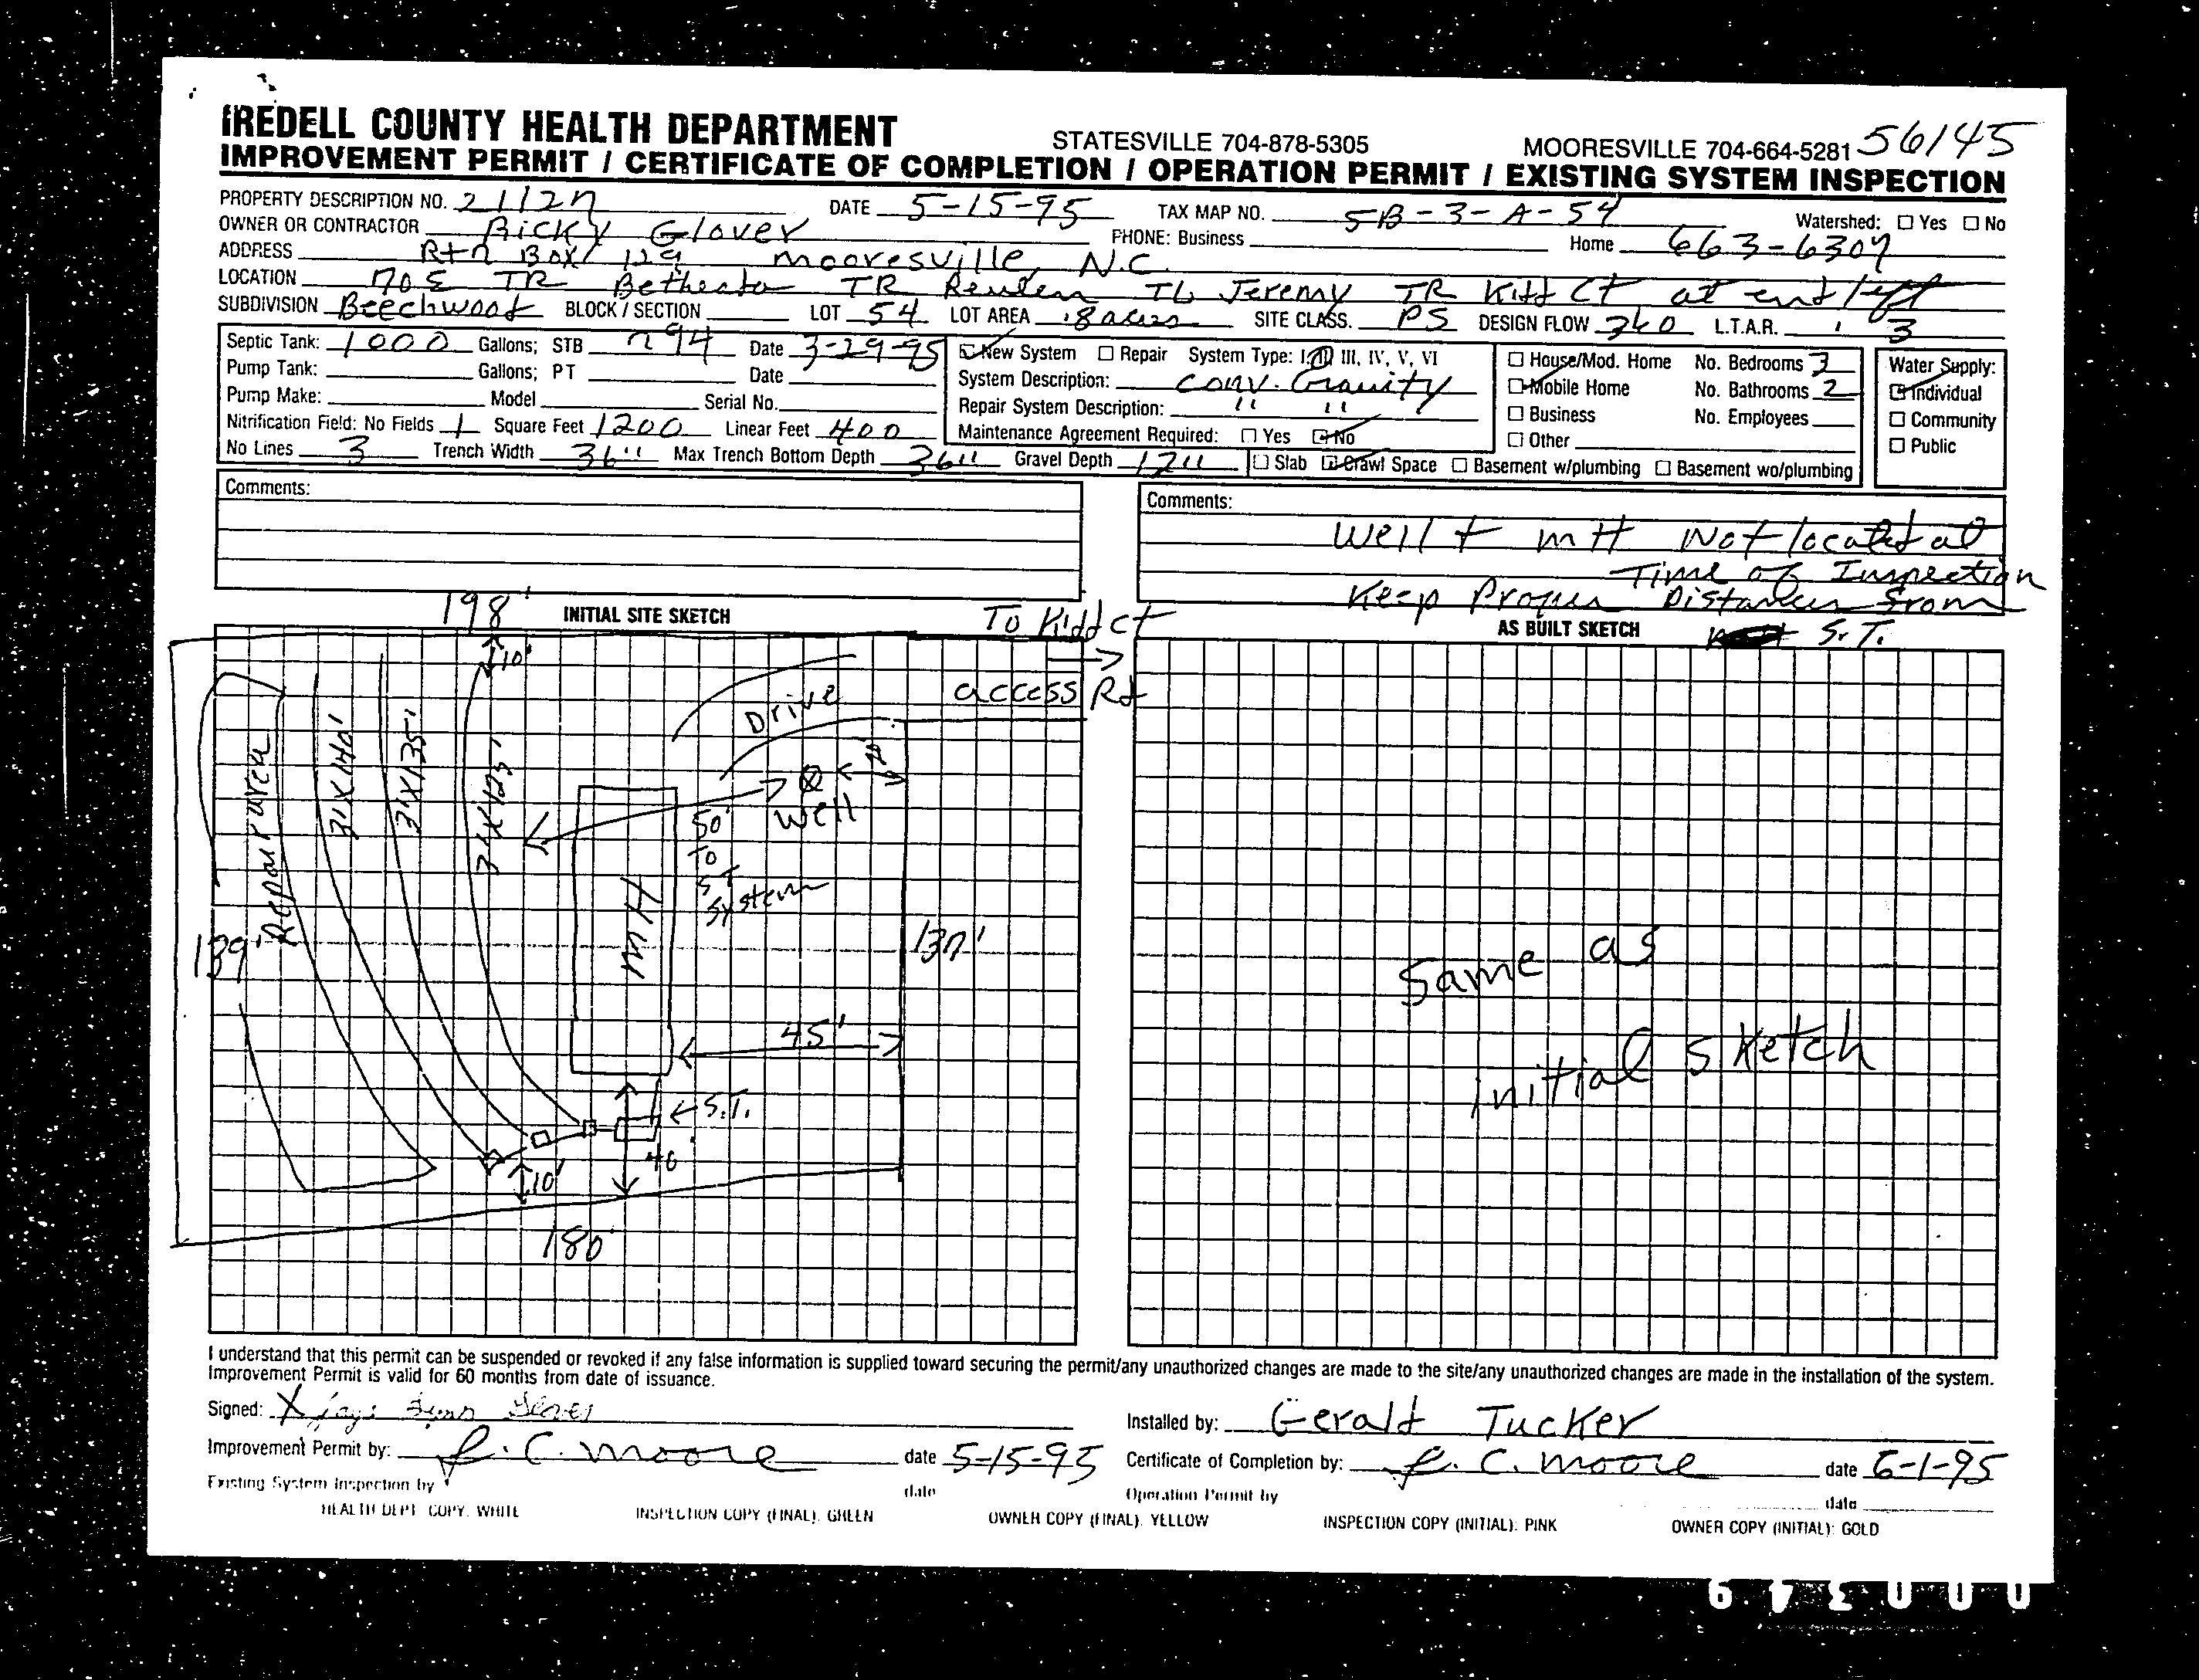 IREDELL COUNTY HEALTH DEPARTMENT STATESVILLE 704-878-5305 MOORESVILLE 704-664-5281 56145
IMPROVEMENT PERMIT / CERTIFICATE OF COMPLETION / OPERATION PERMIT / EXISTING SYSTEM INSPECTION
PROPERTY DESCRIPTION NO. DATE 5-15-95 TAX MAP NO. 5B-3-A-54 Watershed: ☐ Yes ☐ No
OWNER OR CONTRACTOR Ricky Glover PHONE: Business Home
ADDRESS Box 129 Mooresville, N.C.
LOCATION TR TR TL Jeremy TR Kidd Ct at end left
SUBDIVISION Beechwood BLOCK / SECTION LOT 54 LOT AREA .8 acres SITE CLASS. PS DESIGN FLOW 360 L.T.A.R. .3
Septic Tank: 1000 Gallons; STB Date 3-29-95 New System ☐ Repair System Type: I, II, III, IV, V, VI ☐ House/Mod. Home No. Bedrooms 3 Water Supply:
Pump Tank: Gallons; PT Date System Description: Conv. Gravity Mobile Home No. Bathrooms 2 Individual
Pump Make: Model Serial No. Repair System Description: " " ☐ Business No. Employees ☐ Community
Nitrification Field: No Fields 1 Square Feet 1200 Linear Feet 400 Maintenance Agreement Required: ☐ Yes No ☐ Other ☐ Public
No Lines 3 Trench Width 36" Max Trench Bottom Depth 36" Gravel Depth 12" ☐ Slab Crawl Space ☐ Basement w/plumbing ☐ Basement wo/plumbing
Comments: Comments:
Well + MH Not located at
Time of Inspection
Keep Proper Distances from
S.T.
198' INITIAL SITE SKETCH To Kidd Ct AS BUILT SKETCH
10'
access Rd
Drive
Repair area
3'X140'
3'X135'
3'X125'
Well
50'
To
S.T.
System
MH
139'
137'
45'
S.T.
40'
10'
180'
Same as
initial sketch
I understand that this permit can be suspended or revoked if any false information is supplied toward securing the permit/any unauthorized changes are made to the site/any unauthorized changes are made in the installation of the system.
Improvement Permit is valid for 60 months from date of issuance.
Signed: X Installed by: Gerald Tucker
Improvement Permit by: R. C. Moore date 5-15-95 Certificate of Completion by: R. C. Moore date 6-1-95
Existing System Inspection by date Operation Permit by date
HEALTH DEPT COPY. WHITE INSPECTION COPY (FINAL). GREEN OWNER COPY (FINAL). YELLOW INSPECTION COPY (INITIAL): PINK OWNER COPY (INITIAL): GOLD